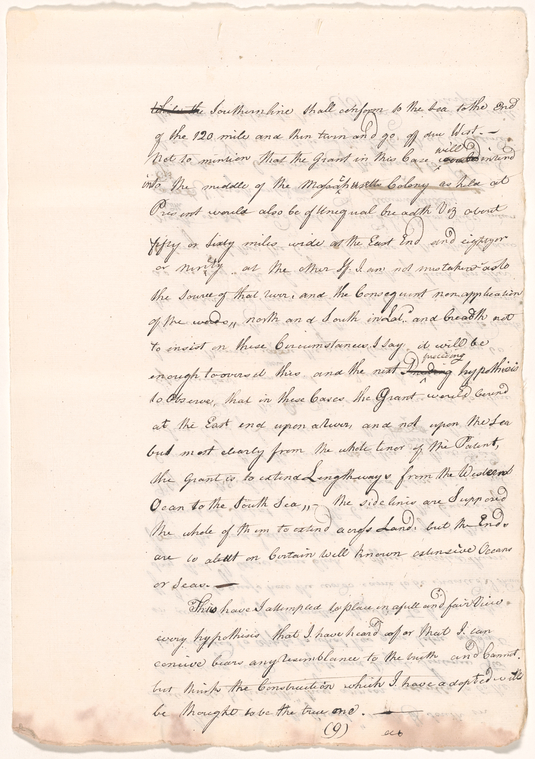 the Southernline shall conform to the Sea to the End
of the 120 mile and then turn and go off due West. —
Not to mention that the Grant in this Case will intend
into the middle of the Massachusetts Colony as held at
Present would also be of Unequal breadth Viz about
fifty or Sixty miles wide at the East End and eighty
or ninety at the other If I am not mistaken as to
the Source of that river; and the Consequent nonapplication
of the words,, north and South in Lat. and breadth not
to insist on these Circumstances I say it will be
enough to overset this and the next preceding hypothisis
to Observe, that in these Cases the Grant would bound
at the East end upon a river, and not upon the Sea
but most clearly from the whole tenor of the Patent,
the Grant is to extend Lengthways from the Western
Ocean to the South Sea,, — the side lines are Supposed
the whole of them to extend across Land; but the Ends
are to abutt on Certain well known extensive Oceans
or Seas. —
Thus have I attempted to place in a full and fair View
every hypothisis that I have heard of or that I can
conceive bears any resemblance to the truth and Cannot
but think the Construction which I have adopted will
be thought to be the true one. —
(9)